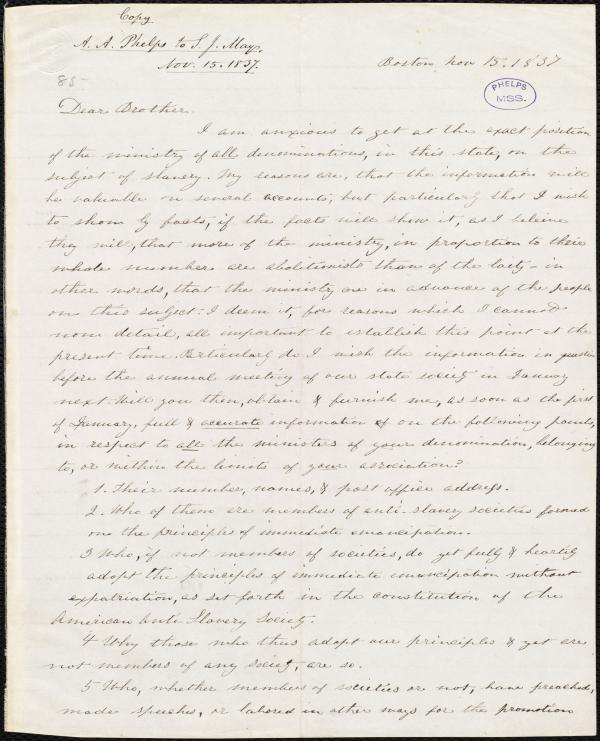 Copy
A. A. Phelps to S. J. May.
Nov. 15. 1837.
Boston Nov 15. 1837
85-
PHELPS
MSS.
Dear Brother.
I am anxious to get at the exact position
of the ministry of all denominations, in this state, on the
subject of slavery. My reasons are, that the information will
be valuable on several accounts, but particularly that I wish
to show by facts, if the facts will shew it, as I believe
they will, that more of the ministry, in proportion to their
whole number are abolitionists than of the laity - in
other words, that the ministry are in advance of the people
on this subject. I deem it, for reasons which I cannot
now detail, all important to establish this point at the
present time. Particularly do I wish the information in question
before the annual meeting of our state society in January
next. Will you then, obtain & furnish me, as soon as the first
of January, full & accurate information on the following points,
in respect to all the ministers of your denomination, belonging
to, or within the limits of your association?
1. Their number, names, & post office address.
2. Who of them are members of anti-slavery societies formed
on the principles of immediate emancipation.
3 Who, if not members of societies, do yet fully & heartily
adopt the principles of immediate emancipation without
expatriation, as set forth in the constitution of the
American Anti Slavery Society.
4 Why those who thus adopt our principles & yet are
not members of any society, are so.
5 Who, whether members of societies or not, have preached,
made speeches, or labored in other ways for the promotion